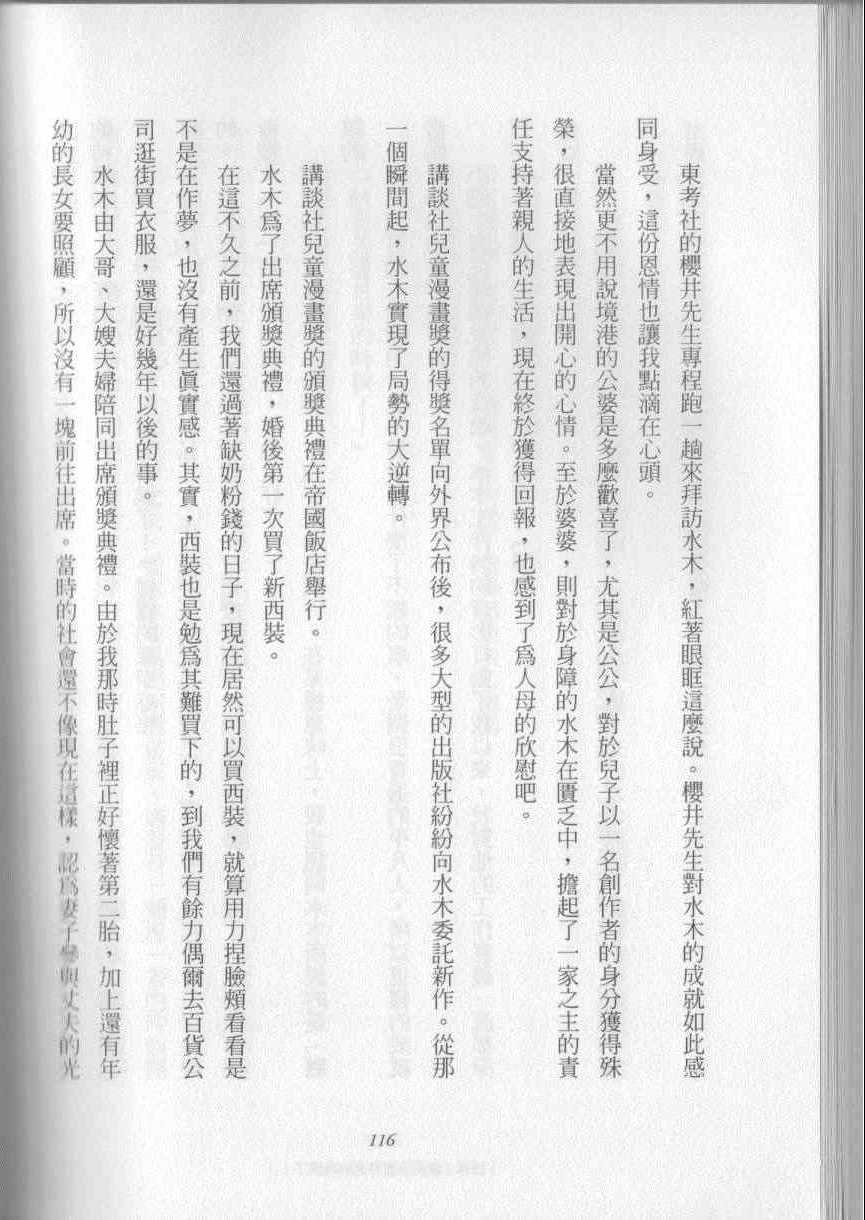 東考社的櫻井先生專程跑一趟來拜訪水木，紅著眼眶這麼說。櫻井先生對水木的成就如此感
同身受，這份恩情也讓我點滴在心頭。
當然更不用說境港的公婆是多麼歡喜了，尤其是公公，對於兒子以一名創作者的身分獲得殊
榮，很直接地表現出開心的心情。至於婆婆，則對於身障的水木在匱乏中，擔起了一家之主的責
任支持著親人的生活，現在終於獲得回報，也感到了為人母的欣慰吧。
講談社兒童漫畫獎的得獎名單向外界公布後，很多大型的出版社紛紛向水木委託新作。從那
一個瞬間起，水木實現了局勢的大逆轉。
講談社兒童漫畫獎的頒獎典禮在帝國飯店舉行。
水木為了出席頒獎典禮，婚後第一次買了新西裝。
在這不久之前，我們還過著缺奶粉錢的日子，現在居然可以買西裝，就算用力捏臉頰看看是
不是在作夢，也沒有產生真實感。其實，西裝也是勉為其難買下的，到我們有餘力偶爾去百貨公
司逛街買衣服，還是好幾年以後的事。
水木由大哥、大嫂夫婦陪同出席頒獎典禮。由於我那時肚子裡正好懷著第二胎，加上還有年
幼的長女要照顧，所以沒有一塊前往出席。當時的社會還不像現在這樣，認為妻子參與丈夫的光
116